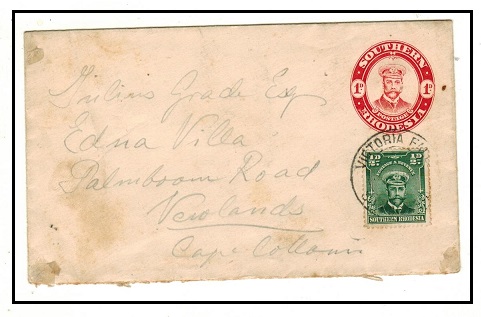 SOUTHERN
1D 1D
POSTAGE
RHODESIA
VICTORIA FA
Julius Grade Esq
Edna Villa
Palmboom Road
Newlands
Cape
½D ½D
SOUTHERN RHODESIA